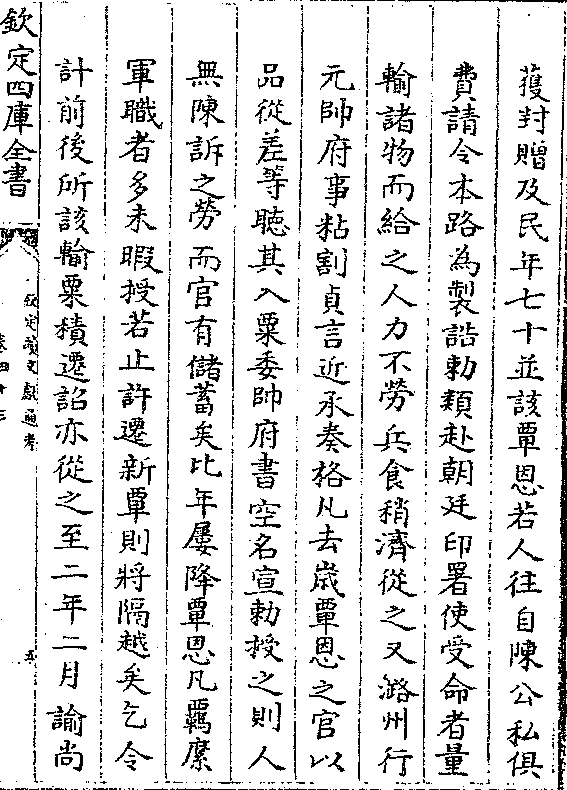 獲封贈及民年七十並該覃恩若人往自陳公私俱
費請令本路為製誥勅類赴朝廷印署使受命者量
輸諸物而給之人力不勞兵食稍濟從之又潞州行
元帥府事粘割貞言近承奏格凡去歲覃恩之官以
品從差等聽其入粟委帥府書空名宣勅授之則人
無陳訴之勞而官有儲蓄矣比年屢降覃恩凡羈縻
軍職者多未暇授若止許遷新覃則將隔越矣乞令
計前後所該輸粟積遷詔亦從之至二年二月諭尚
欽定四庫全書
欽定續文獻通考
卷四十三
五